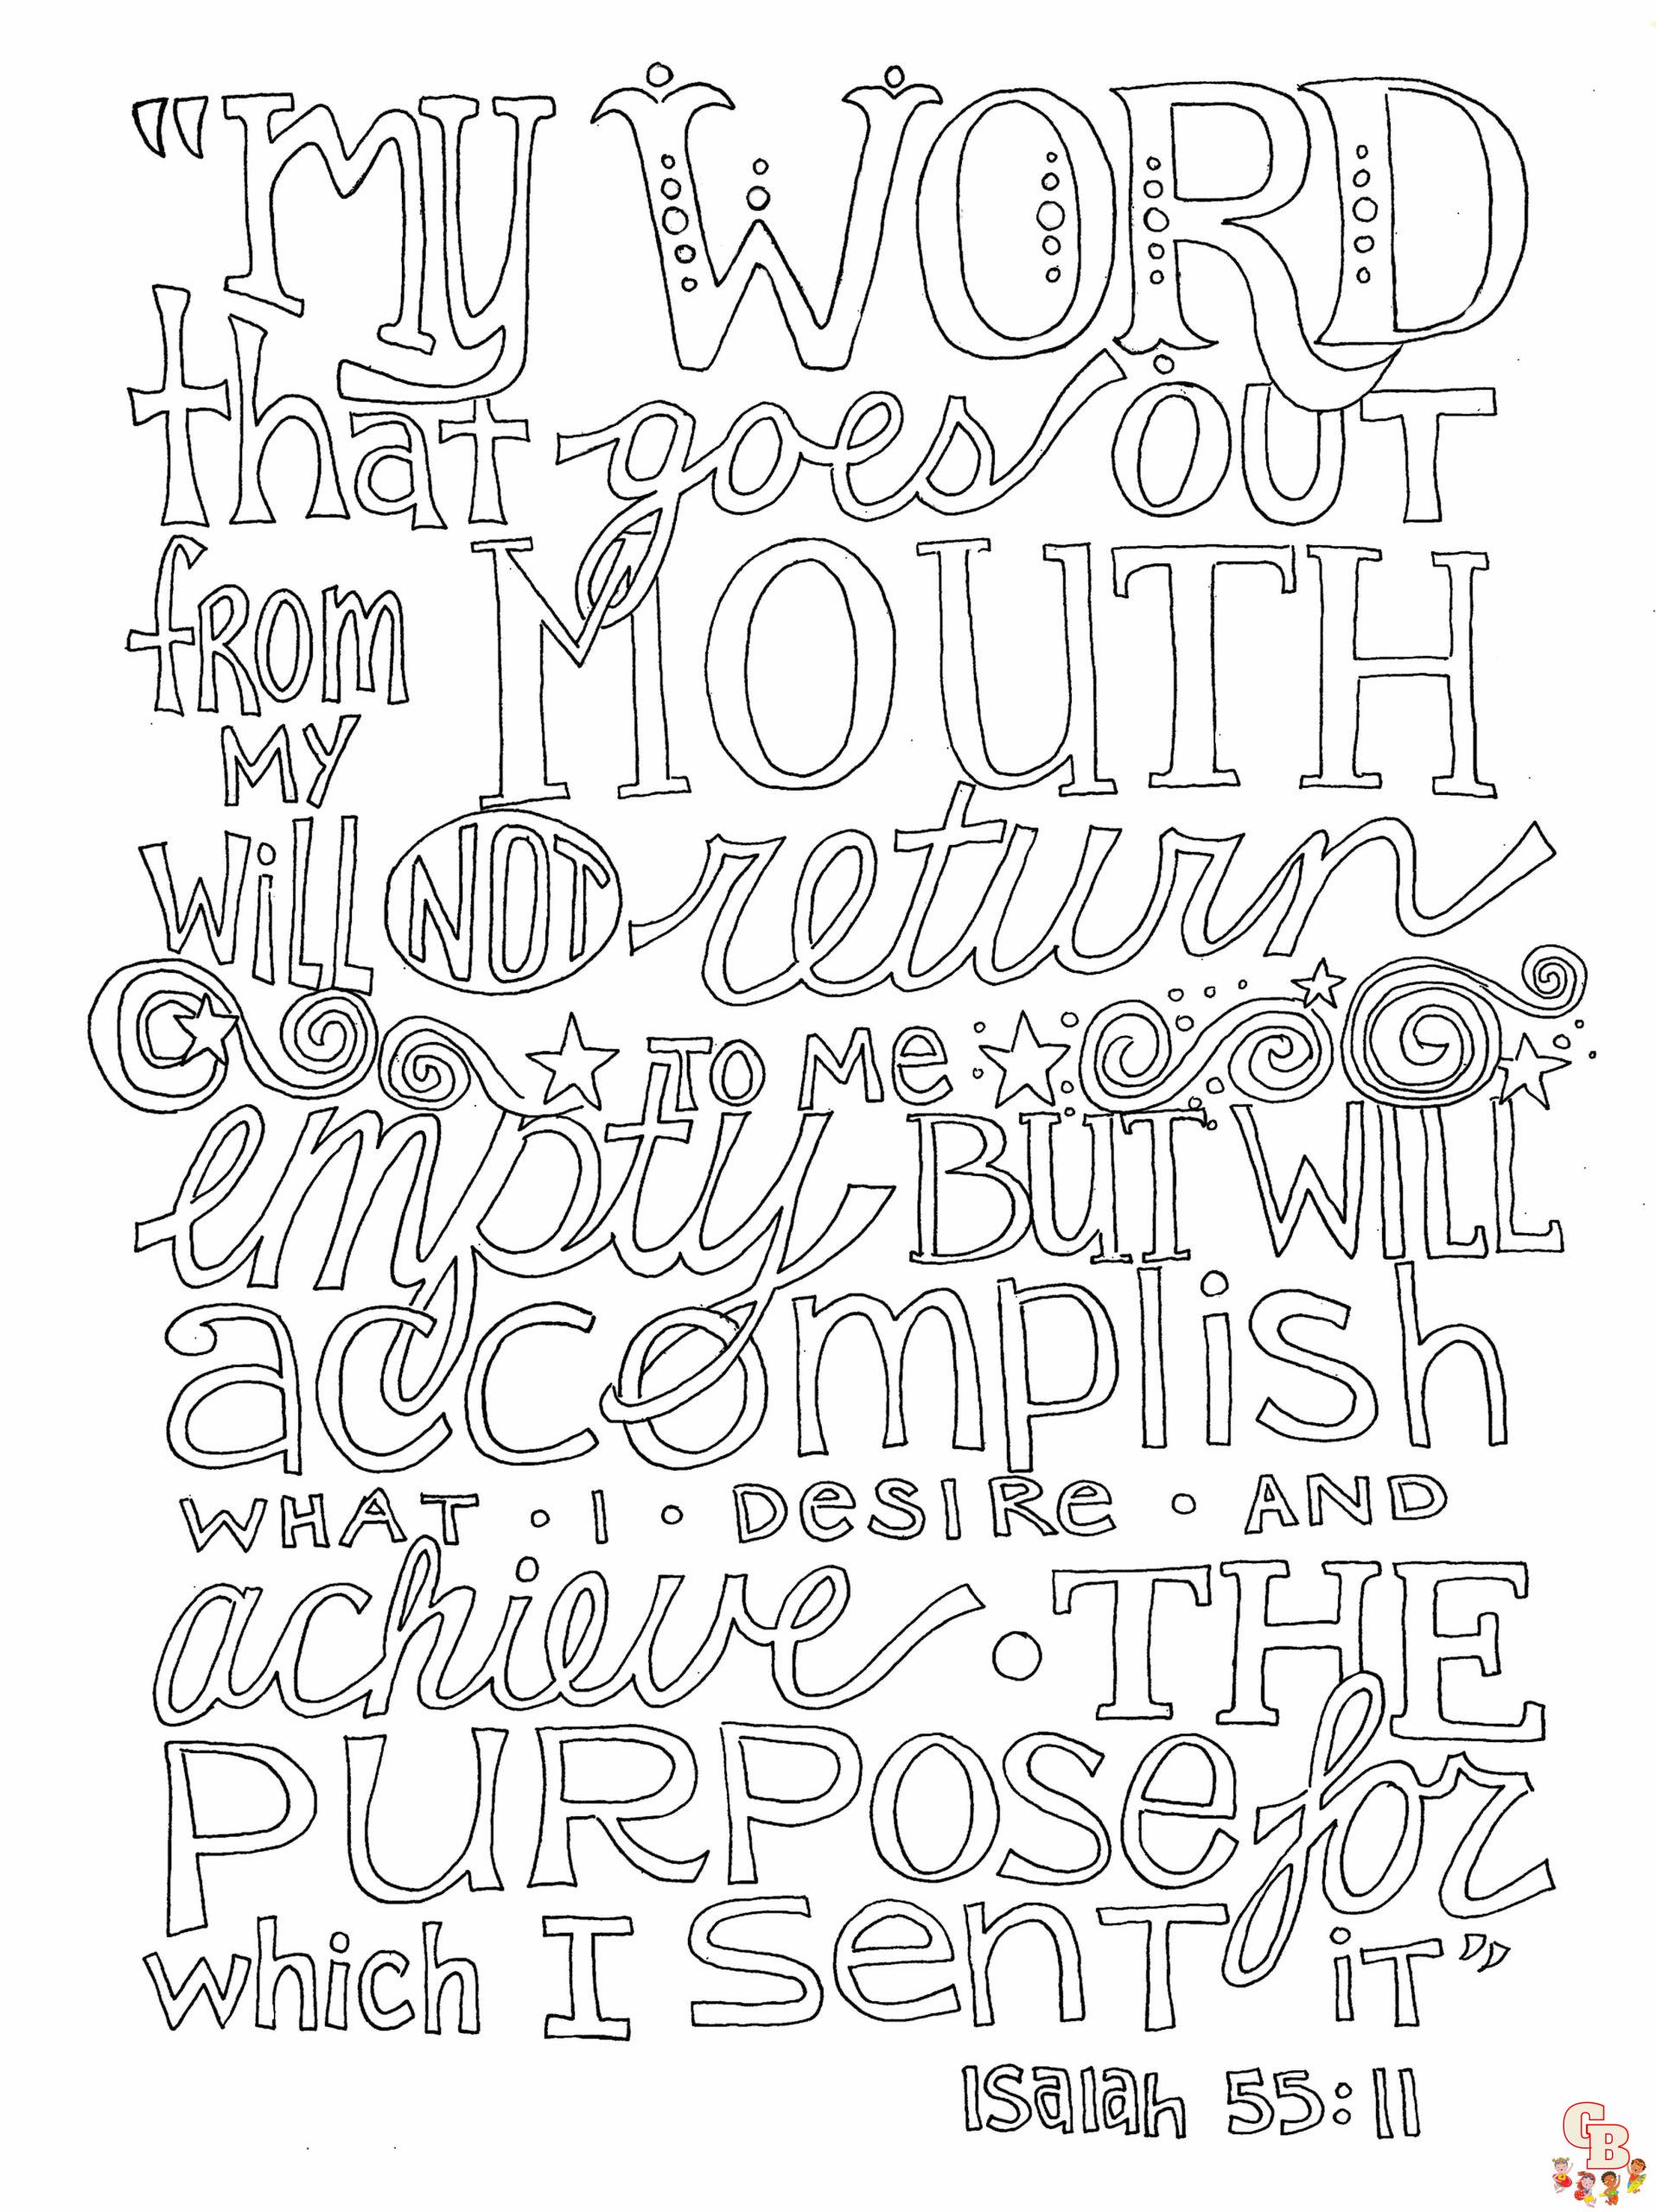 "my WORD
that goes OUT
from MOUTH
MY
Will NOT return
TO Me
empty, BUT WILL
accomplish
WHAT · I · DeSIRe · AND
achieve · THE
PURPOSe for
which I SenT iT"
Isaiah 55:11
GB